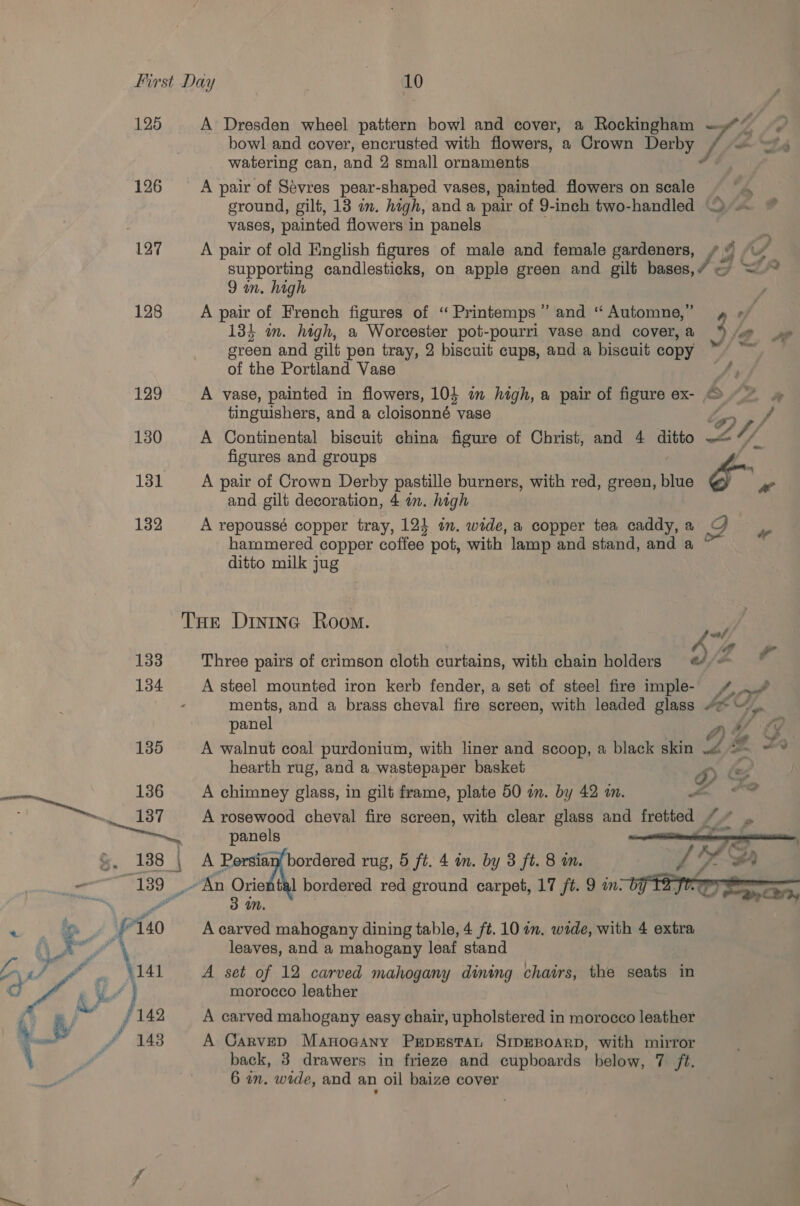 First Day 10
125 A Dresden wheel pattern bowl and cover, a Rockingham
bowl and cover, encrusted with flowers, a Crown Derby
watering can, and 2 small ornaments
126 A pair of Sèvres pear-shaped vases, painted flowers on scale
ground, gilt, 13 in. high, and a pair of 9-inch two-handled
vases, painted flowers in panels
127 A pair of old English figures of male and female gardeners,
supporting candlesticks, on apple green and gilt bases,
9 in. high
128 A pair of French figures of “Printemps” and “Automne,”
13½ in. high, a Worcester pot-pourri vase and cover, a
green and gilt pen tray, 2 biscuit cups, and a biscuit copy
of the Portland Vase
129 A vase, painted in flowers, 10½ in high, a pair of figure ex-
tinguishers, and a cloisonné vase
130 A Continental biscuit china figure of Christ, and 4 ditto
figures and groups
131 A pair of Crown Derby pastille burners, with red, green, blue
and gilt decoration, 4 in. high
132 A repoussé copper tray, 12½ in. wide, a copper tea caddy, a
hammered copper coffee pot, with lamp and stand, and a
ditto milk jug
THE DINING ROOM.
133 Three pairs of crimson cloth curtains, with chain holders
134 A steel mounted iron kerb fender, a set of steel fire imple-
ments, and a brass cheval fire screen, with leaded glass
panel
135 A walnut coal purdonium, with liner and scoop, a black skin
hearth rug, and a wastepaper basket
136 A chimney glass, in gilt frame, plate 50 in. by 42 in.
137 A rosewood cheval fire screen, with clear glass and fretted
panels
138 A Persian bordered rug, 5 ft. 4 in. by 3 ft. 8 in.
139 An Oriental bordered red ground carpet, 17 ft. 9 in. by 12 ft.
3 in.
140 A carved mahogany dining table, 4 ft. 10 in. wide, with 4 extra
leaves, and a mahogany leaf stand
141 A set of 12 carved mahogany dining chairs, the seats in
morocco leather
142 A carved mahogany easy chair, upholstered in morocco leather
143 A CARVED MAHOGANY PEDESTAL SIDEBOARD, with mirror
back, 3 drawers in frieze and cupboards below, 7 ft.
6 in. wide, and an oil baize cover